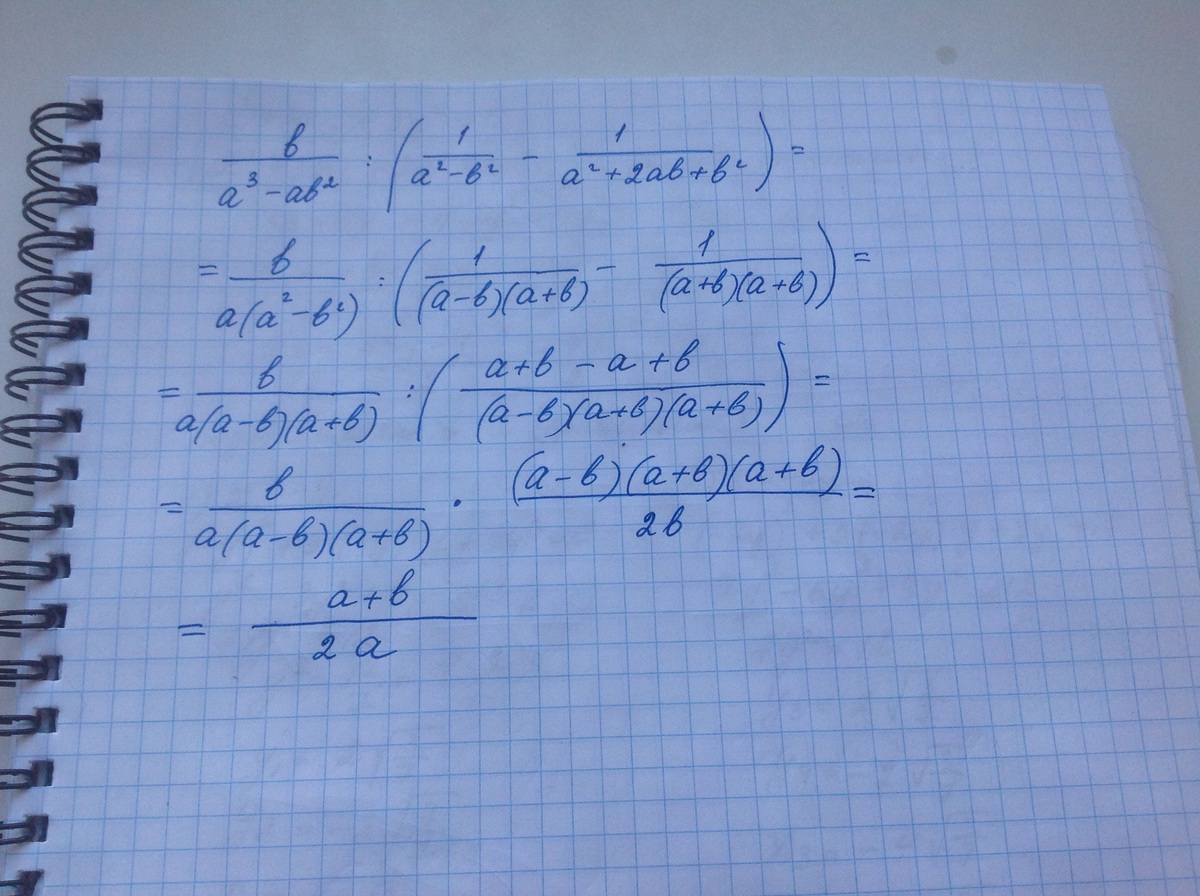 b/(a³ - ab²) : (1/(a² - b²) - 1/(a² + 2ab + b²)) =
= b/(a(a² - b²)) : (1/((a - b)(a + b)) - 1/((a + b)(a + b))) =
= b/(a(a - b)(a + b)) : ((a + b - a + b)/((a - b)(a + b)(a + b))) =
= b/(a(a - b)(a + b)) · ((a - b)(a + b)(a + b))/(2b) =
= (a + b)/(2a)